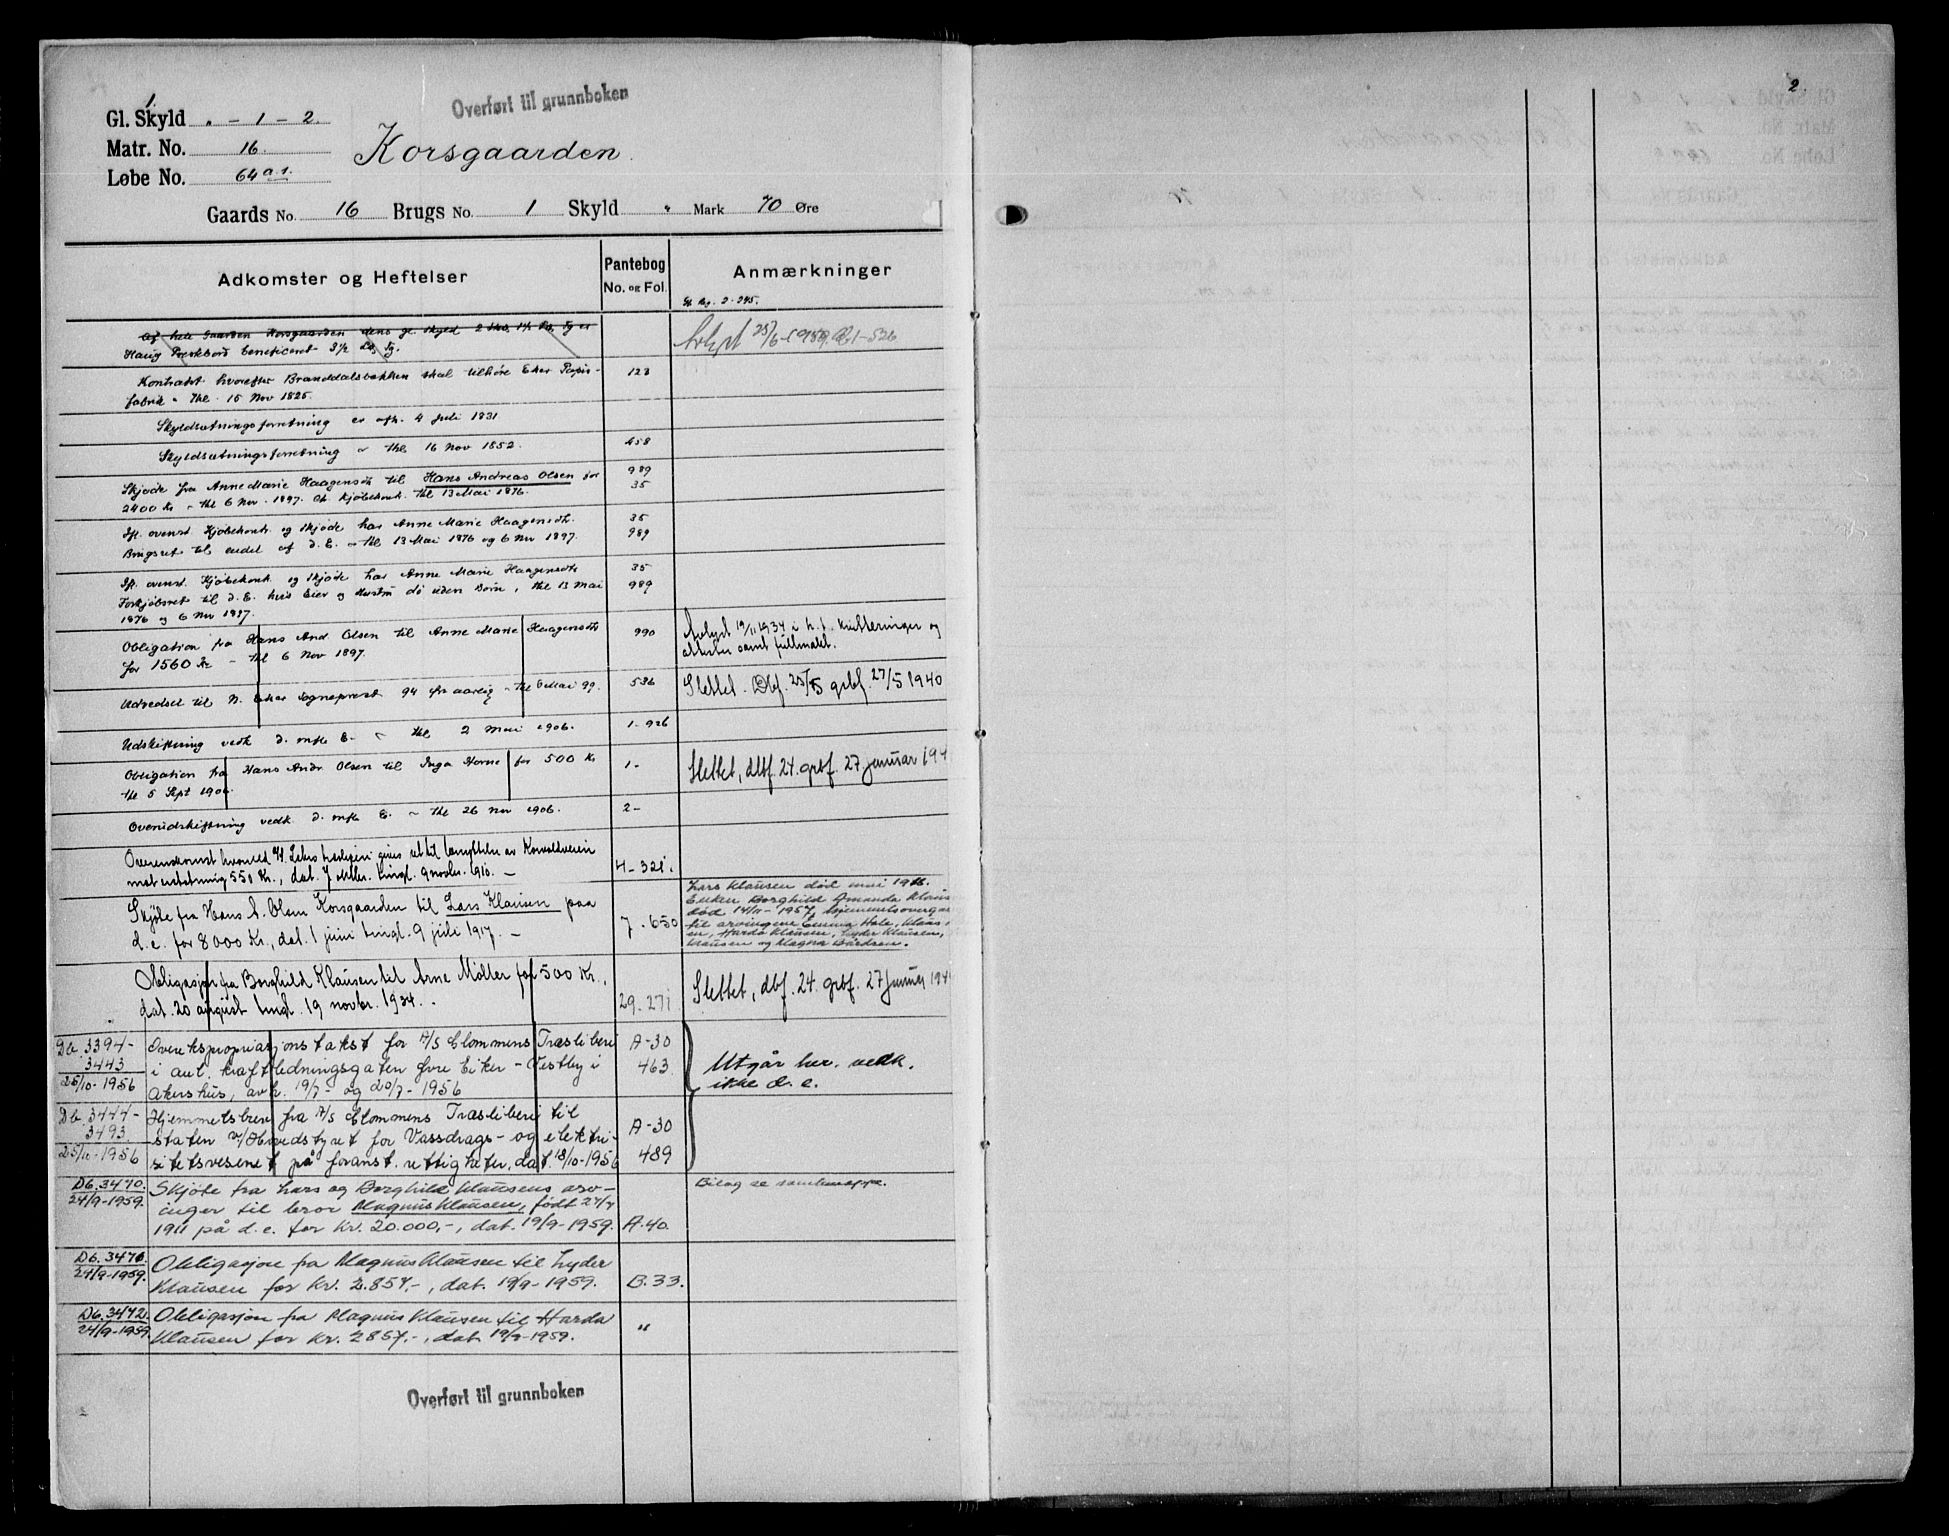 1.
Overført til grunnboken
Gl. Skyld " - 1 - 2.
Matr. No. 16.
Løbe No. 64 a.1.
Korsgaarden.
Gaards No. 16 Brugs No. 1 Skyld " Mark 70 Øre
Adkomster og Heftelser
Pantebog
No. og Fol.
Anmærkninger
Gl. Reg. 2-245.
Af hele Gaarden Korsgaarden dens gl. skyld 2 Skp. 1½ Lp. Tg er
Haug Præstebord beneficeret 3½ Lp. Tg.
Avlyst 25/6-1959.
Kontrakt hvorefter Branddalsbækken skal tilhøre Eker Papir-
fabrik - thl. 15 Nov 1825.
123
Skyldsætningsforretning er afh. 4 Juli 1831
Skyldsætningsforretning - thl 16 Nov 1852.
458
Skjøde fra Anne Marie Haagensdt til Hans Andreas Olsen for
2400 Kr - thl 6 Nov. 1897. Cfr. Kjøbekont. thl 13 Mai 1876.
989
35
Ifl. ovenst. Kjøbekont. og Skjøde har Anne Marie Haagensdt.
Brugsret til endel af d. E. - thl 13 Mai 1876 og 6 Nov 1897.
35
989
Ifl. ovenst. Kjøbekont. og Skjøde har Anne Marie Haagensdt
Forkjøbsret til d. E. hvis Eier og Hustru dø uden Børn, thl 13 Mai
1876 og 6 Nov 1897.
35
989
Obligation fra Hans And Olsen til Anne Marie Haagensdt
for 1560 Kr - thl 6 Nov 1897.
990
Avlyst 19/11 1934 i h. t. kvitteringer og
attester samt fullmakt.
Udredsel til N. Eker Sogneprest 94 Øre aarlig - thl 5 Mai 99.
536
Slettet. Dbf. 25/5 grbf. 27/5 1940
Udskiftning vedk d. mfl E. - thl 2 Mai 1906.
1-926
Obligation fra Hans Andr. Olsen til Inga Horne for 500 Kr
thl 5 Sept 1906.
1-
Slettet, dbf. 24. grbf. 27 januar 194
Overudskiftning vedk. d. mfl. E. - thl 26 Nov 1906.
2-
Overenskomst hvorved A/S Eker træsliperi gives ret til benyttelse av Korvaldveien
mot erstatning 550 Kr., dat. 7 oktbr. tingl. 9 novbr. 1910. -
4-321.
Skjøte fra Hans A. Olsen Korsgaarden til Lars Klausen paa
d. e. for 8000 Kr., dat. 1 juni tingl. 9 juli 1917. -
7-650
Lars Klausen død mai 19
Enken Borghild Amanda Klaus
død 14/11-1957, hjemmelsovergan
til arvingene Emma Hals, Klaus
en, Harda Klausen, Lyder Klausen,
Klausen og Magna Bårdsen.
Obligasjon fra Borghild Klausen til Arne Møller for 500 Kr.,
dat. 20 august tingl. 19 novbr. 1934. -
29-271
Slettet, dbf. 24. grbf. 27 januar 194
Db. 3394-
3443
25/10-1956
Overekspropriasjonstakst for A/S Glommens Træsliberi
i anl. kraftledningsgaten Øvre Eiker - Vestby i
Akershus, avh. 19/7- og 20/7-1956
A-30
463
Utgår her. vedk.
ikke d. e.
Db. 3444-
3493.
25/10-1956
Hjemmelsbrev fra A/S Glommens Træsliberi til
staten v/Hovedstyret for Vassdrags- og elektri-
sitetsvesenet på foranst. rettigheter, dat. 18/10-1956
A-30
489
Db. 3470.
24/9-1959.
Skjøte fra Lars og Borghild Klausens arv-
inger til bror Magnus Klausen, født 24/4
1911 på d. e. for kr. 20.000,-, dat. 19/9-1959.
A-40.
Bilag se samlemappe.
Db. 3471.
24/9-1959.
Obligasjon fra Magnus Klausen til Lyder
Klausen for kr. 2.857,-, dat. 19/9-1959.
B.33.
Db. 3472.
24/9-1959
Obligasjon fra Magnus Klausen til Harda
Klausen for kr. 2857,-, dat. 19/9-1959.
"
Overført til grunnboken
2.